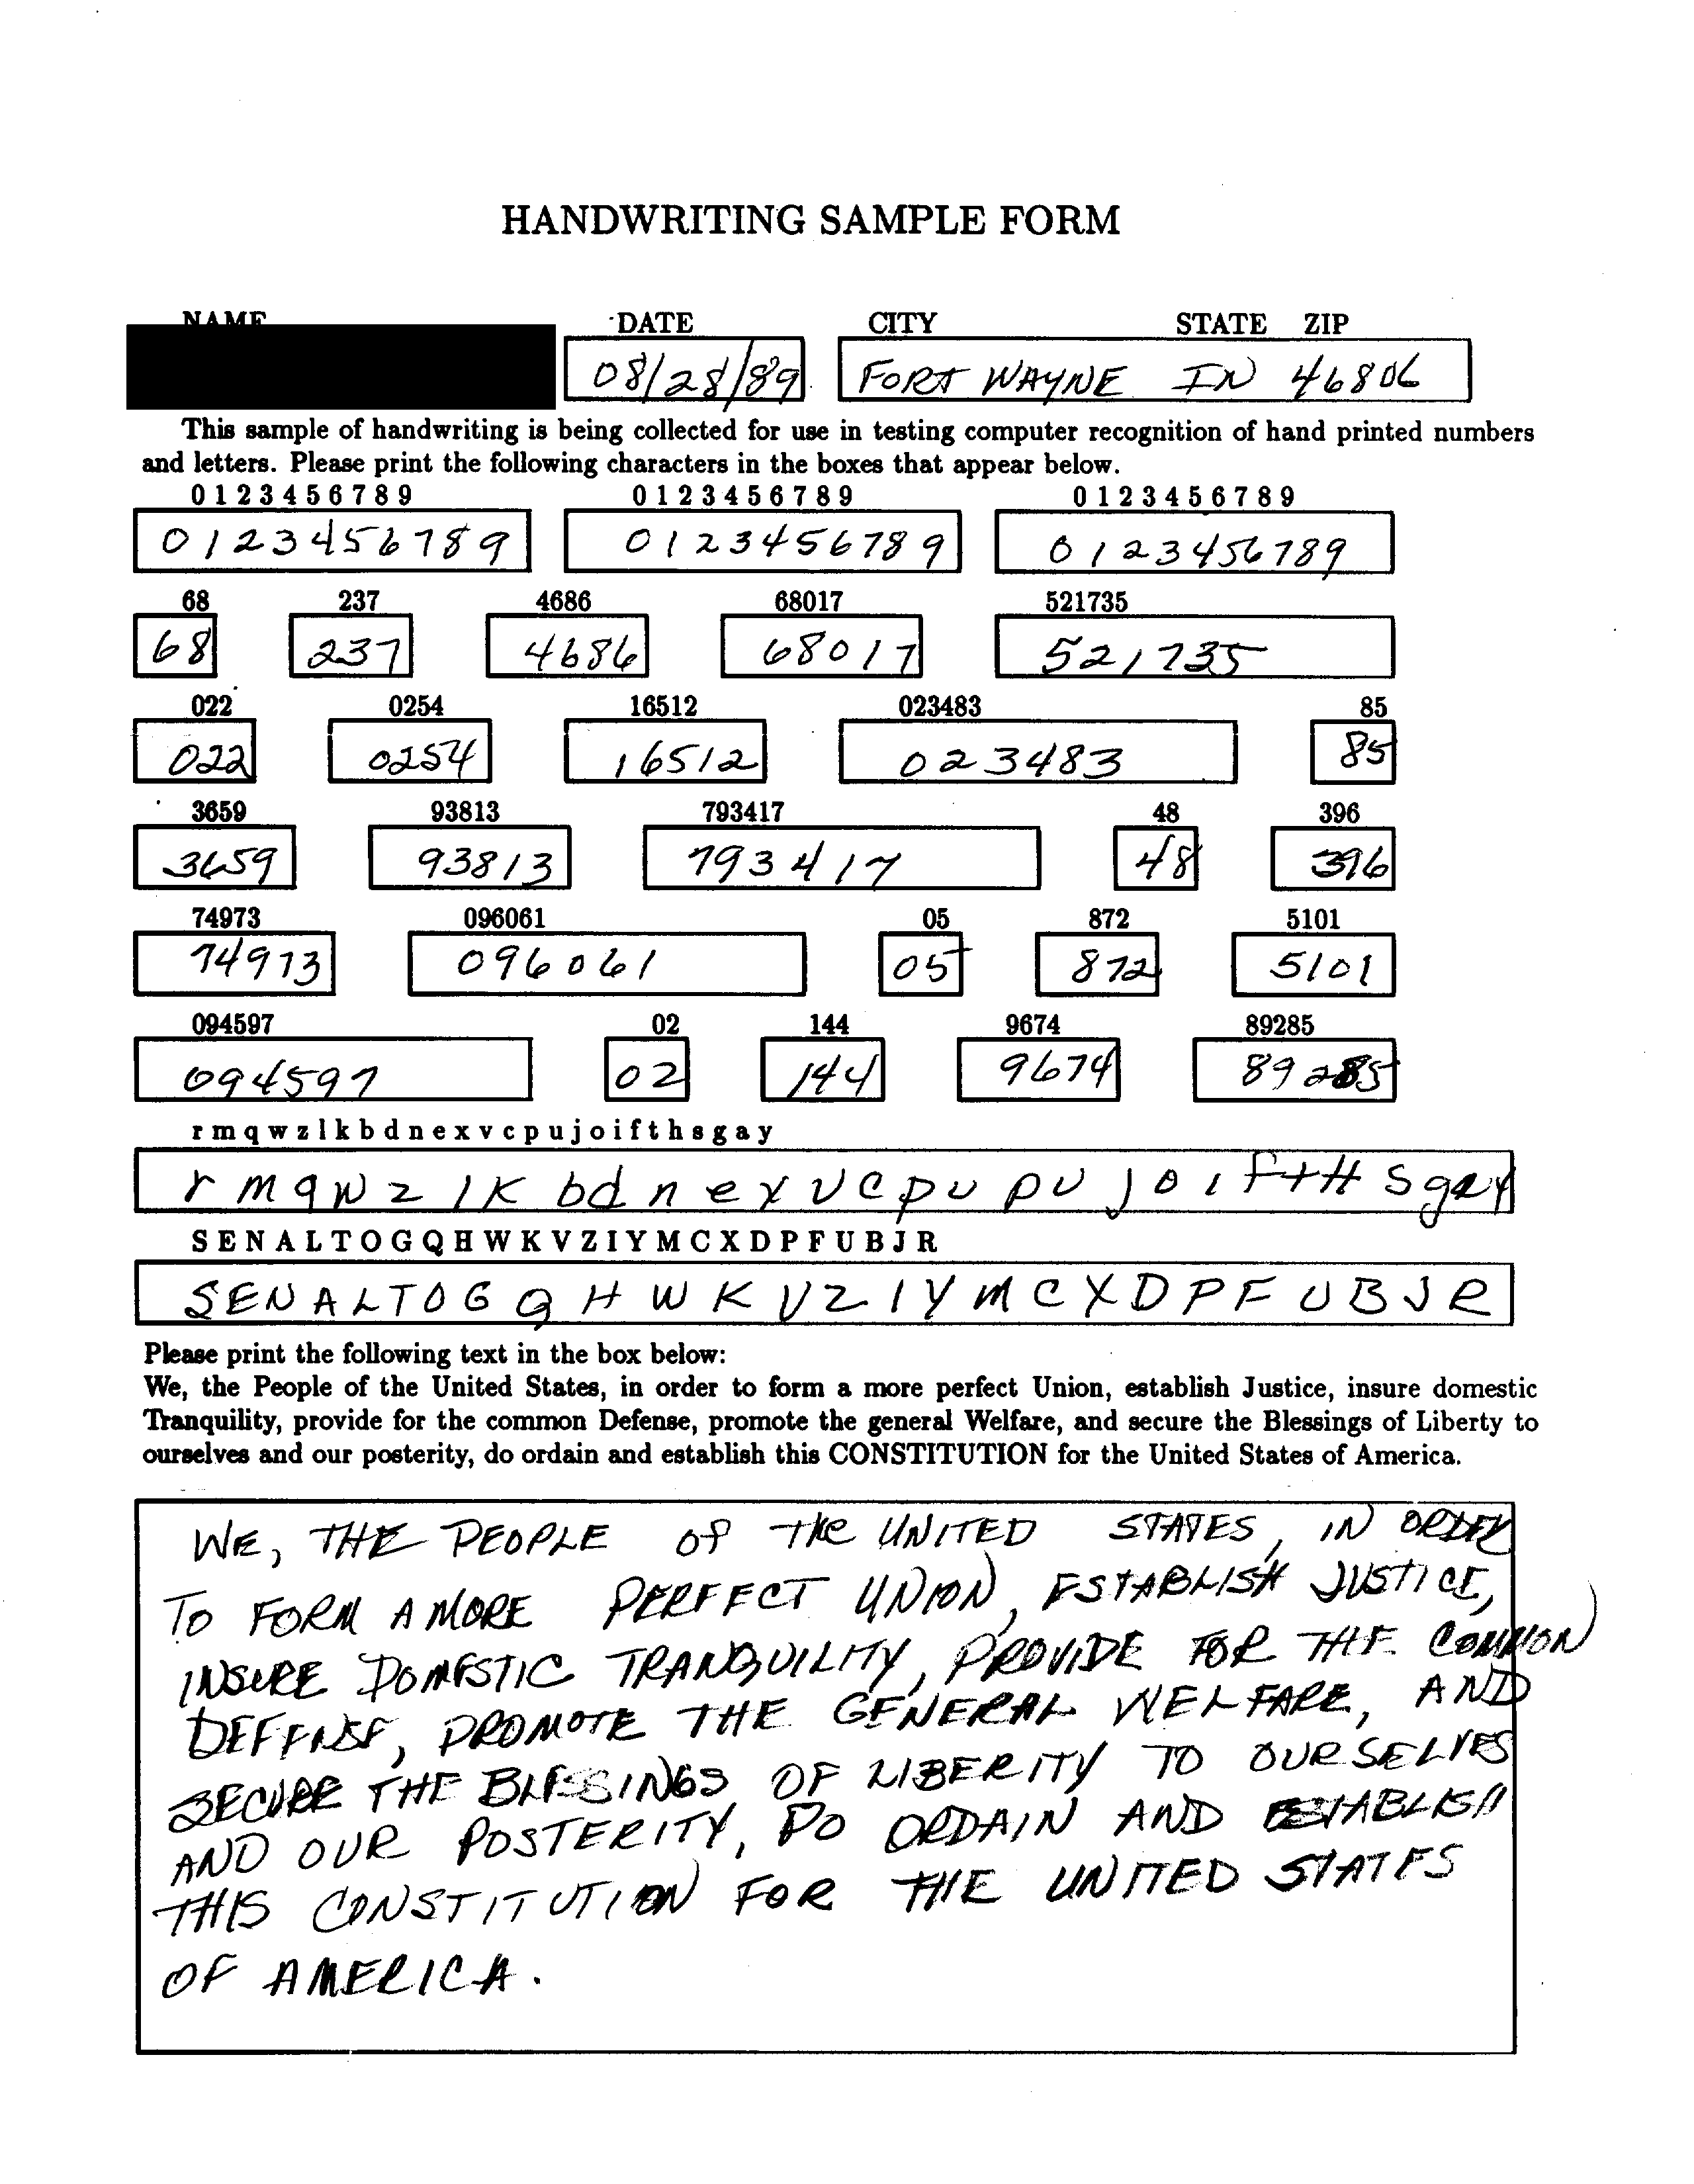 HANDWRITING SAMPLE FORM
NAME DATE CITY STATE ZIP
08/28/89 FORT WAYNE IN 46806
This sample of handwriting is being collected for use in testing computer recognition of hand printed numbers
and letters. Please print the following characters in the boxes that appear below.
0 1 2 3 4 5 6 7 8 9 0 1 2 3 4 5 6 7 8 9 0 1 2 3 4 5 6 7 8 9
0123456789 0123456789 0123456789
68 237 4686 68017 521735
68 237 4686 68017 521735
022 0254 16512 023483 85
022 0254 16512 023483 85
3659 93813 793417 48 396
3659 93813 793417 48 396
74973 096061 05 872 5101
74973 096061 05 872 5101
094597 02 144 9674 89285
094597 02 144 9674 89285
r m q w z l k b d n e x v c p u j o i f t h s g a y
r m q w z l K b d n e x v c p u p u j o i f t H s g a y
S E N A L T O G Q H W K V Z I Y M C X D P F U B J R
S E N A L T O G Q H W K V Z I Y M C X D P F U B J R
Please print the following text in the box below:
We, the People of the United States, in order to form a more perfect Union, establish Justice, insure domestic
Tranquility, provide for the common Defense, promote the general Welfare, and secure the Blessings of Liberty to
ourselves and our posterity, do ordain and establish this CONSTITUTION for the United States of America.
WE, THE PEOPLE of the UNITED STATES, IN ORDER
TO FORM A MORE PERFECT UNION, ESTABLISH JUSTICE,
INSURE DOMESTIC TRANQUILITY, PROVIDE FOR THE COMMON
DEFENSE, PROMOTE THE GENERAL WELFARE, AND
SECURE THE BLESSINGS OF LIBERITY TO OURSELVES
AND OUR POSTERITY, DO ORDAIN AND ESTABLISH
THIS CONSTITUTION FOR THE UNITED STATES
OF AMERICA.